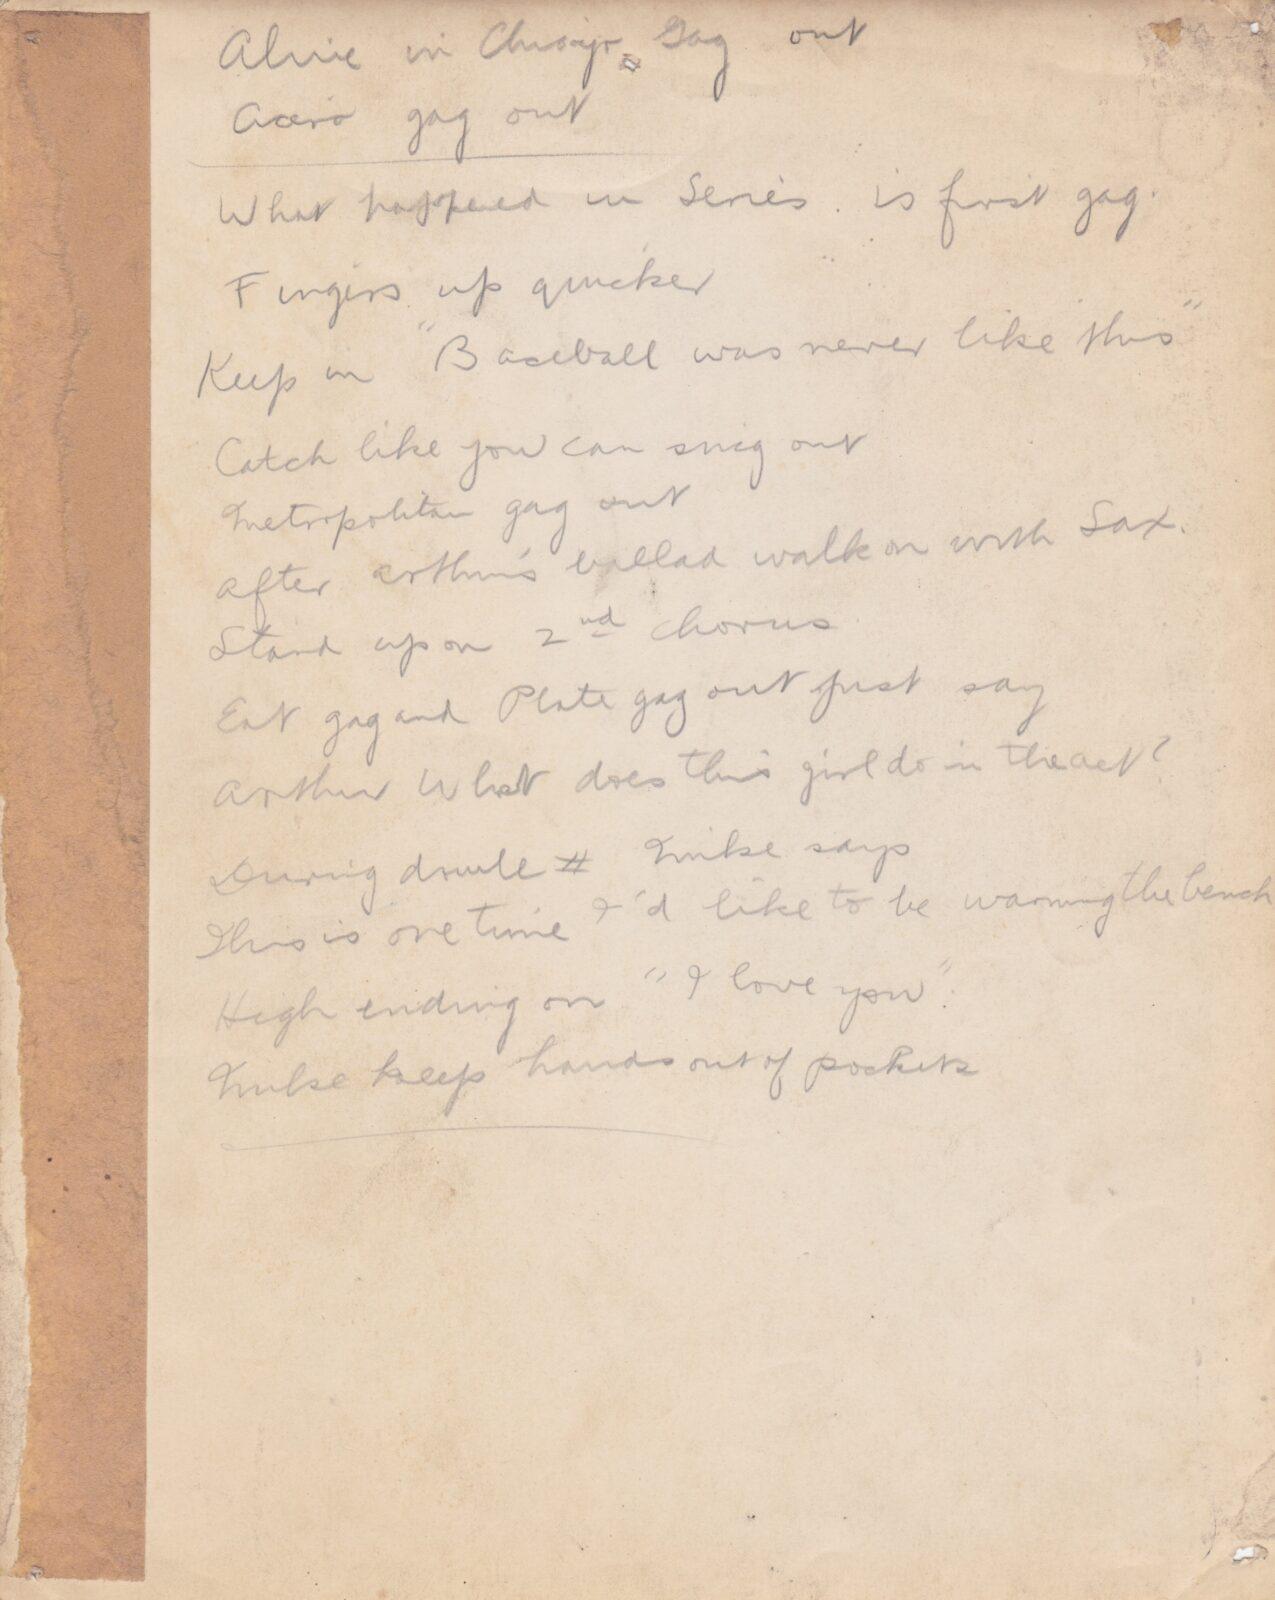 Alive in Chicago Gag out
gag out
What happened in Series. is first gag.
Fingers up quicker
Keep in "Baseball was never like this"
Catch like you can sing out
Metropolitan gag out
after arthur's ballad walk on with Sax.
Stand up on 2nd chorus
Eat gag and Plate gag out just say
arthur What does this girl do in the act?
During # Mike says
This is one time I'd like to be warming the bench
High ending on "I love you".
Mike keep hands out of pockets